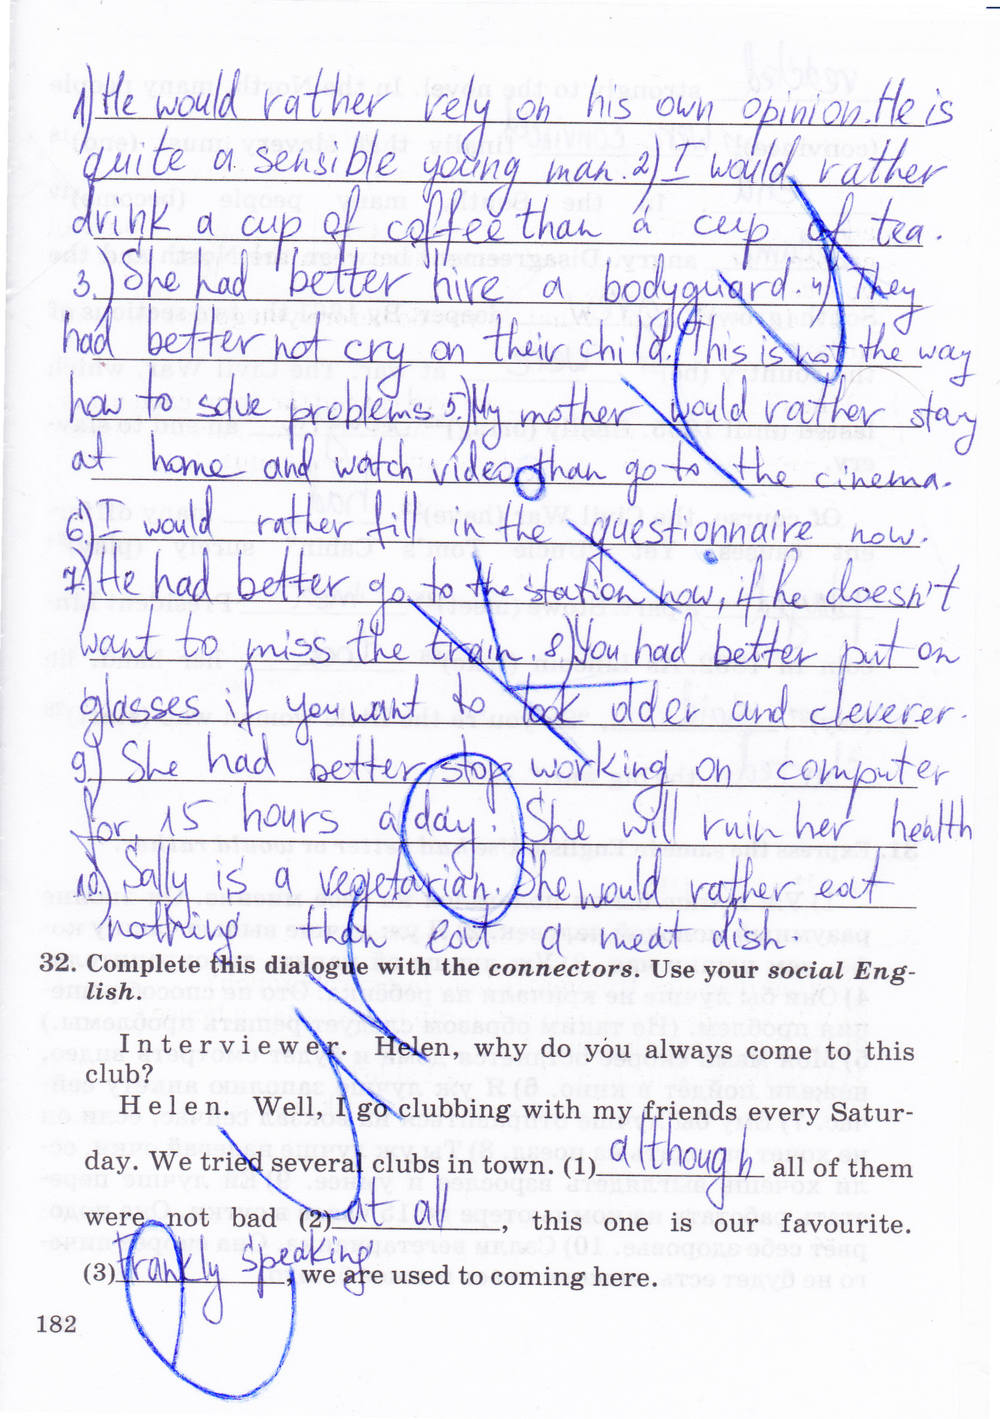 1) He would rather rely on his own opinion. He is
quite a sensible young man. 2) I would rather
drink a cup of coffee than a cup of tea.
3.) She had better hire a bodyguard. 4) They
had better not cry on their child. (This is not the way
how to solve problems. 5.) My mother would rather stay
at home and watch video than go to the cinema.
6.) I would rather fill in the questionnaire now.
7.) He had better go to the station now, if he doesn't
want to miss the train. 8) You had better put on
glasses if you want to look older and cleverer.
9.) She had better stop working on computer
for 15 hours a day. She will ruin her health
10.) Sally is a vegetarian. She would rather eat
nothing than eat a meat dish.
32. Complete this dialogue with the connectors. Use your social Eng-
lish.
Interviewer. Helen, why do you always come to this
club?
Helen. Well, I go clubbing with my friends every Satur-
day. We tried several clubs in town. (1) although all of them
were not bad (2) at all this one is our favourite.
(3) Frankly speaking, we are used to coming here.
182